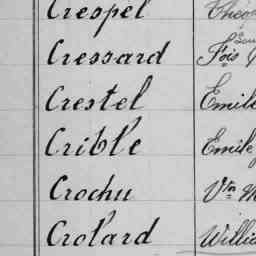 Crespel
Cressard Fois
Crestel Emile
Crible Emile
Crochu Vtn
Crolard